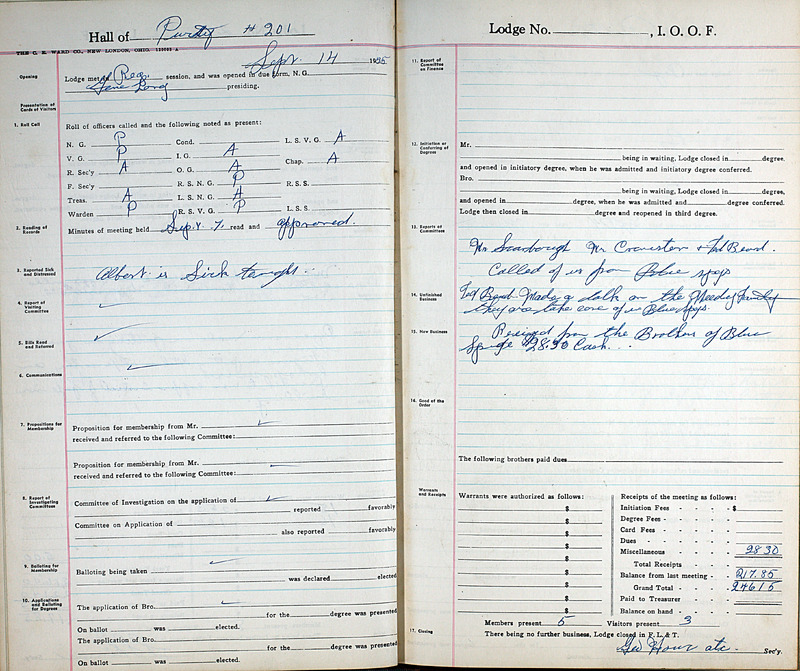 Hall of Purity # 201
THE C. E. WARD CO., NEW LONDON, OHIO.
Sept. 14 1935
Opening
Lodge met in Reg. session, and was opened in due form, N. G.
Gene Long presiding.
Presentation of Cards of Visitors
1. Roll Call
Roll of officers called and the following noted as present:
N. G. P Cond. L. S. V. G. A
V. G. P I. G. A Chap. A
R. Sec'y A O. G. A
F. Sec'y R. S. N. G. P R. S. S.
Treas. A L. S. N. G. A
Warden P R. S. V. G. P L. S. S.
2. Reading of Records
Minutes of meeting held Sept 7. read and approved.
3. Reported Sick and Distressed
Albert is Sick
4. Report of Visiting Committee
5. Bills Read and Referred
6. Communications
7. Propositions for Membership
Proposition for membership from Mr.
received and referred to the following Committee:
Proposition for membership from Mr.
received and referred to the following Committee:
8. Report of Investigating Committees
Committee of Investigation on the application of
reported favorably
Committee on Application of
also reported favorably
9. Balloting for Membership
Balloting being taken
was declared elected
10. Applications and Balloting for Degrees
The application of Bro.
for the degree was presented
On ballot was elected.
The application of Bro.
for the degree was presented
On ballot was elected.
Lodge No. , I. O. O. F.
11. Report of Committee on Finance
12. Initiation or Conferring of Degrees
Mr.
being in waiting, Lodge closed in degree,
and opened in initiatory degree, when he was admitted and initiatory degree conferred.
Bro.
being in waiting, Lodge closed in degree,
and opened in degree, when he was admitted and degree conferred.
Lodge then closed in degree and reopened in third degree.
13. Reports of Committees
Mr Scarbough Mr + Beard.
Called of us from Blue spgs
14. Unfinished Business
Beard Made a talk on the Needey Family
they are take care of in Blue spgs.
15. New Business
Received from the Brothers of Blue
28.30 Cash.
16. Good of the Order
The following brothers paid dues
Warrants and Receipts
Warrants were authorized as follows:
$
$
$
$
$
$
$
$
$
Receipts of the meeting as follows:
Initiation Fees - - - - $
Degree Fees - - - -
Card Fees - - - -
Dues - - - -
Miscellaneous - - - - 28 30
Total Receipts
Balance from last meeting - - 217.85
Grand Total - - 246 15
Paid to Treasurer - - -
Balance on hand - - -
Members present 5 Visitors present 3
17. Closing
There being no further business, Lodge closed in F. L. & T.
Sec'y.